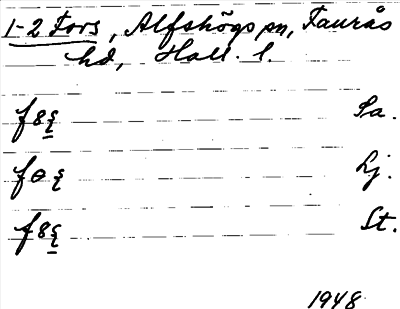 1-2 Fors, Alfshögs pn, Faurås
hd, Hall. l.
f8ξ Sa.
fɵξ Lj.
f8ξ St.
1948